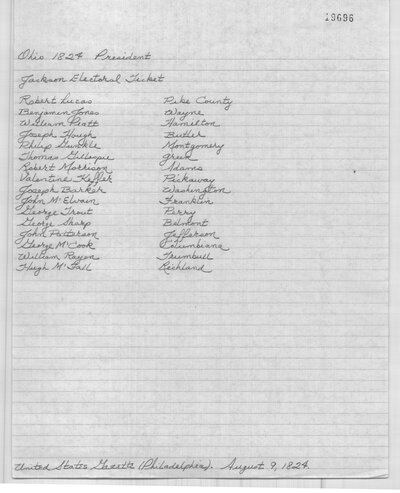 19696
Ohio 1824 President
Jackson Electoral Ticket
Robert Lucas Pike County
Benjamin Jones Wayne
William Piatt Hamilton
Joseph Hough Butler
Philip Gunckle Montgomery
Thomas Gillespie Green
Robert Morrison Adams
Valentine Keffer Pickaway
Joseph Barker Washington
John M'Elvain Franklin
George Trout Perry
George Sharp Belmont
John Patterson Jefferson
George M'Cook Columbiana
William Rayen Trumbull
Hugh M'Fall Richland
United States Gazette (Philadelphia). August 9, 1824.